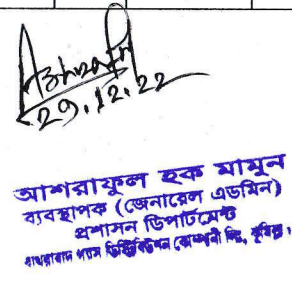 Ashraful
29.12.22
আশরাফুল হক মামুন
ব্যবস্থাপক (জেনারেল এডমিন)
প্রশাসন ডিপার্টমেন্ট
বাখরাবাদ গ্যাস ডিস্ট্রিবিউশন কোম্পানী লিঃ, কুমিল্লা।